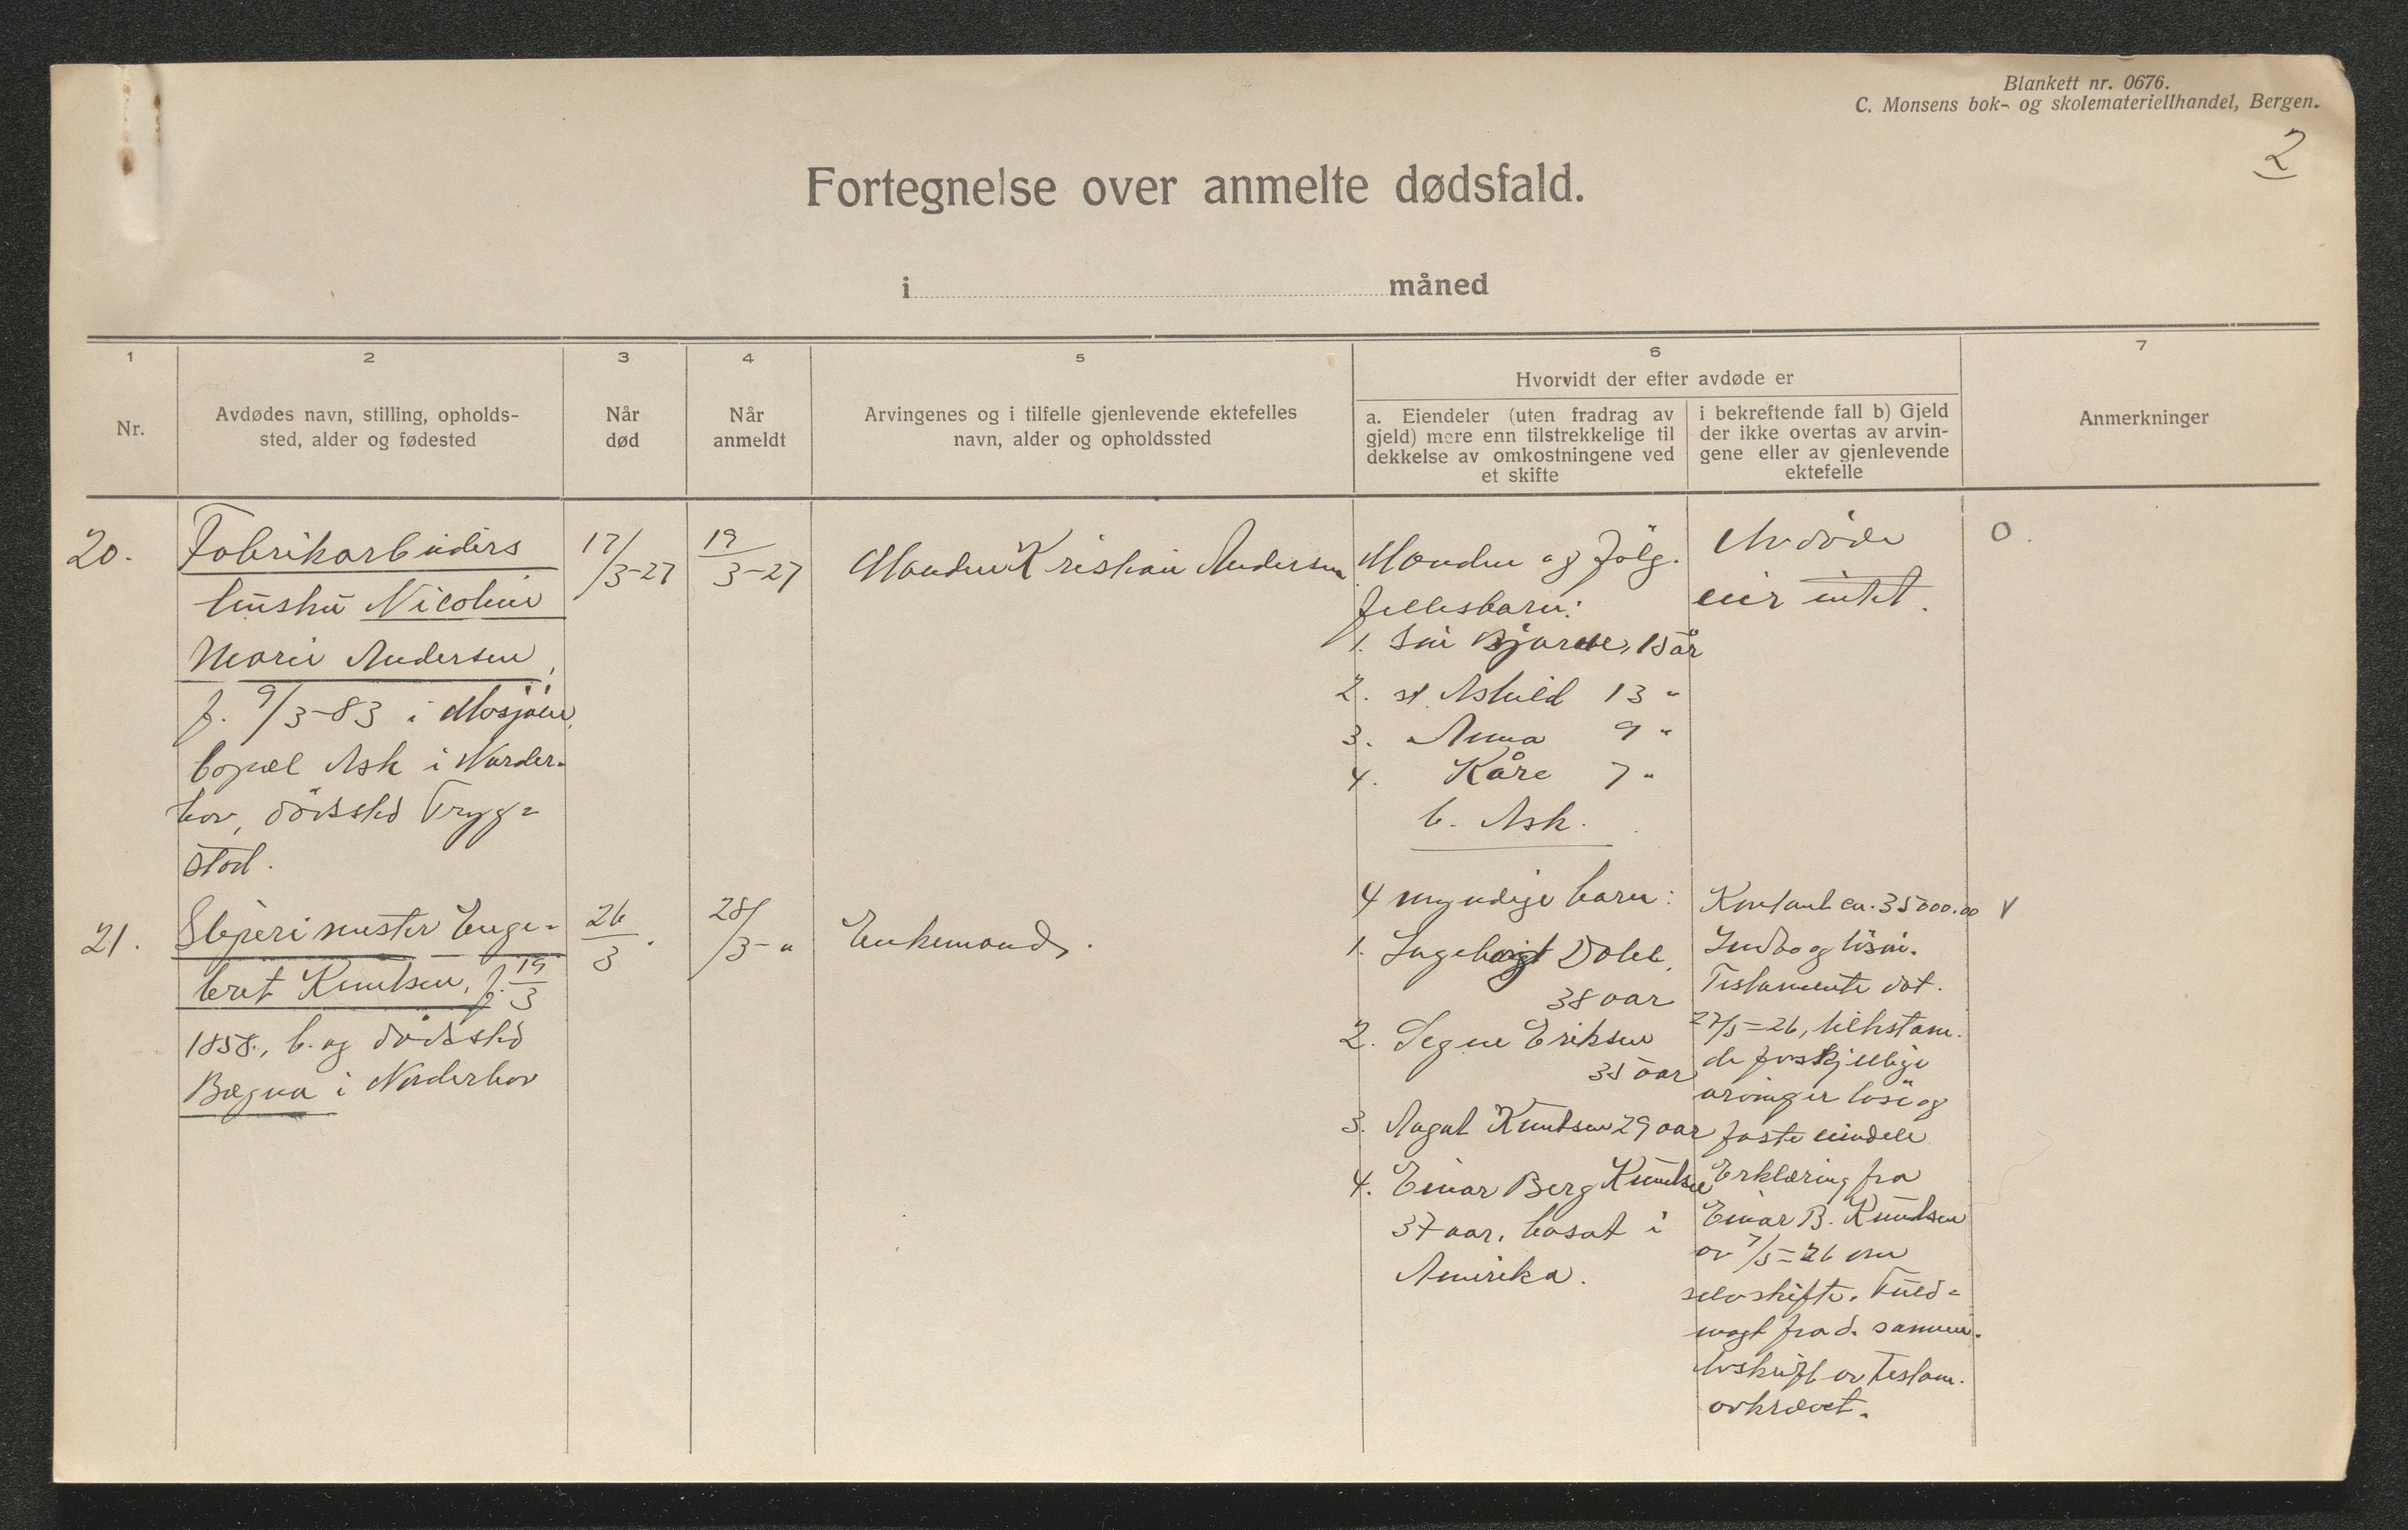 Blankett nr. 0676.
C. Monsens bok- og skolemateriellhandel, Bergen.
2
Fortegnelse over anmelte dødsfald.
i måned
1
2
3
4
5
6
7
Nr.
Avdødes navn, stilling, opholds-
sted, alder og fødested
Når
død
Når
anmeldt
Arvingenes og i tilfelle gjenlevende ektefelles
navn, alder og opholdssted
Hvorvidt der efter avdøde er
a. Eiendeler (uten fradrag av
gjeld) mere enn tilstrekkelige til
dekkelse av omkostningene ved
et skifte
i bekreftende fall b) Gjeld
der ikke overtas av arvin-
gene eller av gjenlevende
ektefelle
Anmerkninger
20.
Fabrikarbeiders
hustru Nicoline
Marie Andersen,
f. 9/3-83 i Mosjøen,
bopæl Ask i Norder-
hov, dödssted Tryg=
stad.
17/3-27
19/3-27
Manden Kristian Andersen
Manden og fölg.
fellesbarn:
1. Sön Bjarne, 15 år
2. st. Ashild 13 "
3. " Anna 9 "
4. Kåre 7 "
b. Ask.
Avdöde
eier intet.
0.
21.
Sliperimester Enge=
bret Knutsen, f. 19/3
1858, b. og dödssted
Bægna i Norderhov
26/3.
28/3-"
Enkemand.
4 myndige barn:
1. Ingeborg Dahl,
38 aar
2. Signe Eriksen
35 aar
3. Aagat Knutsen 29 aar
4. Einar Berg Knutsen
37 aar, bosat i
Amerika.
Kontant ca. 35000.00
Indbo og lösöre.
Testamente dat.
27/5=26, tilkstam.
de forskjellige
arvinger löse og
faste eiendele
Erklæring fra
Einar B. Knutsen
av 7/5=26 om
selvskifte. Fuld=
magt fra d. samme.
Avskrift av testam.
avkrævet.
V